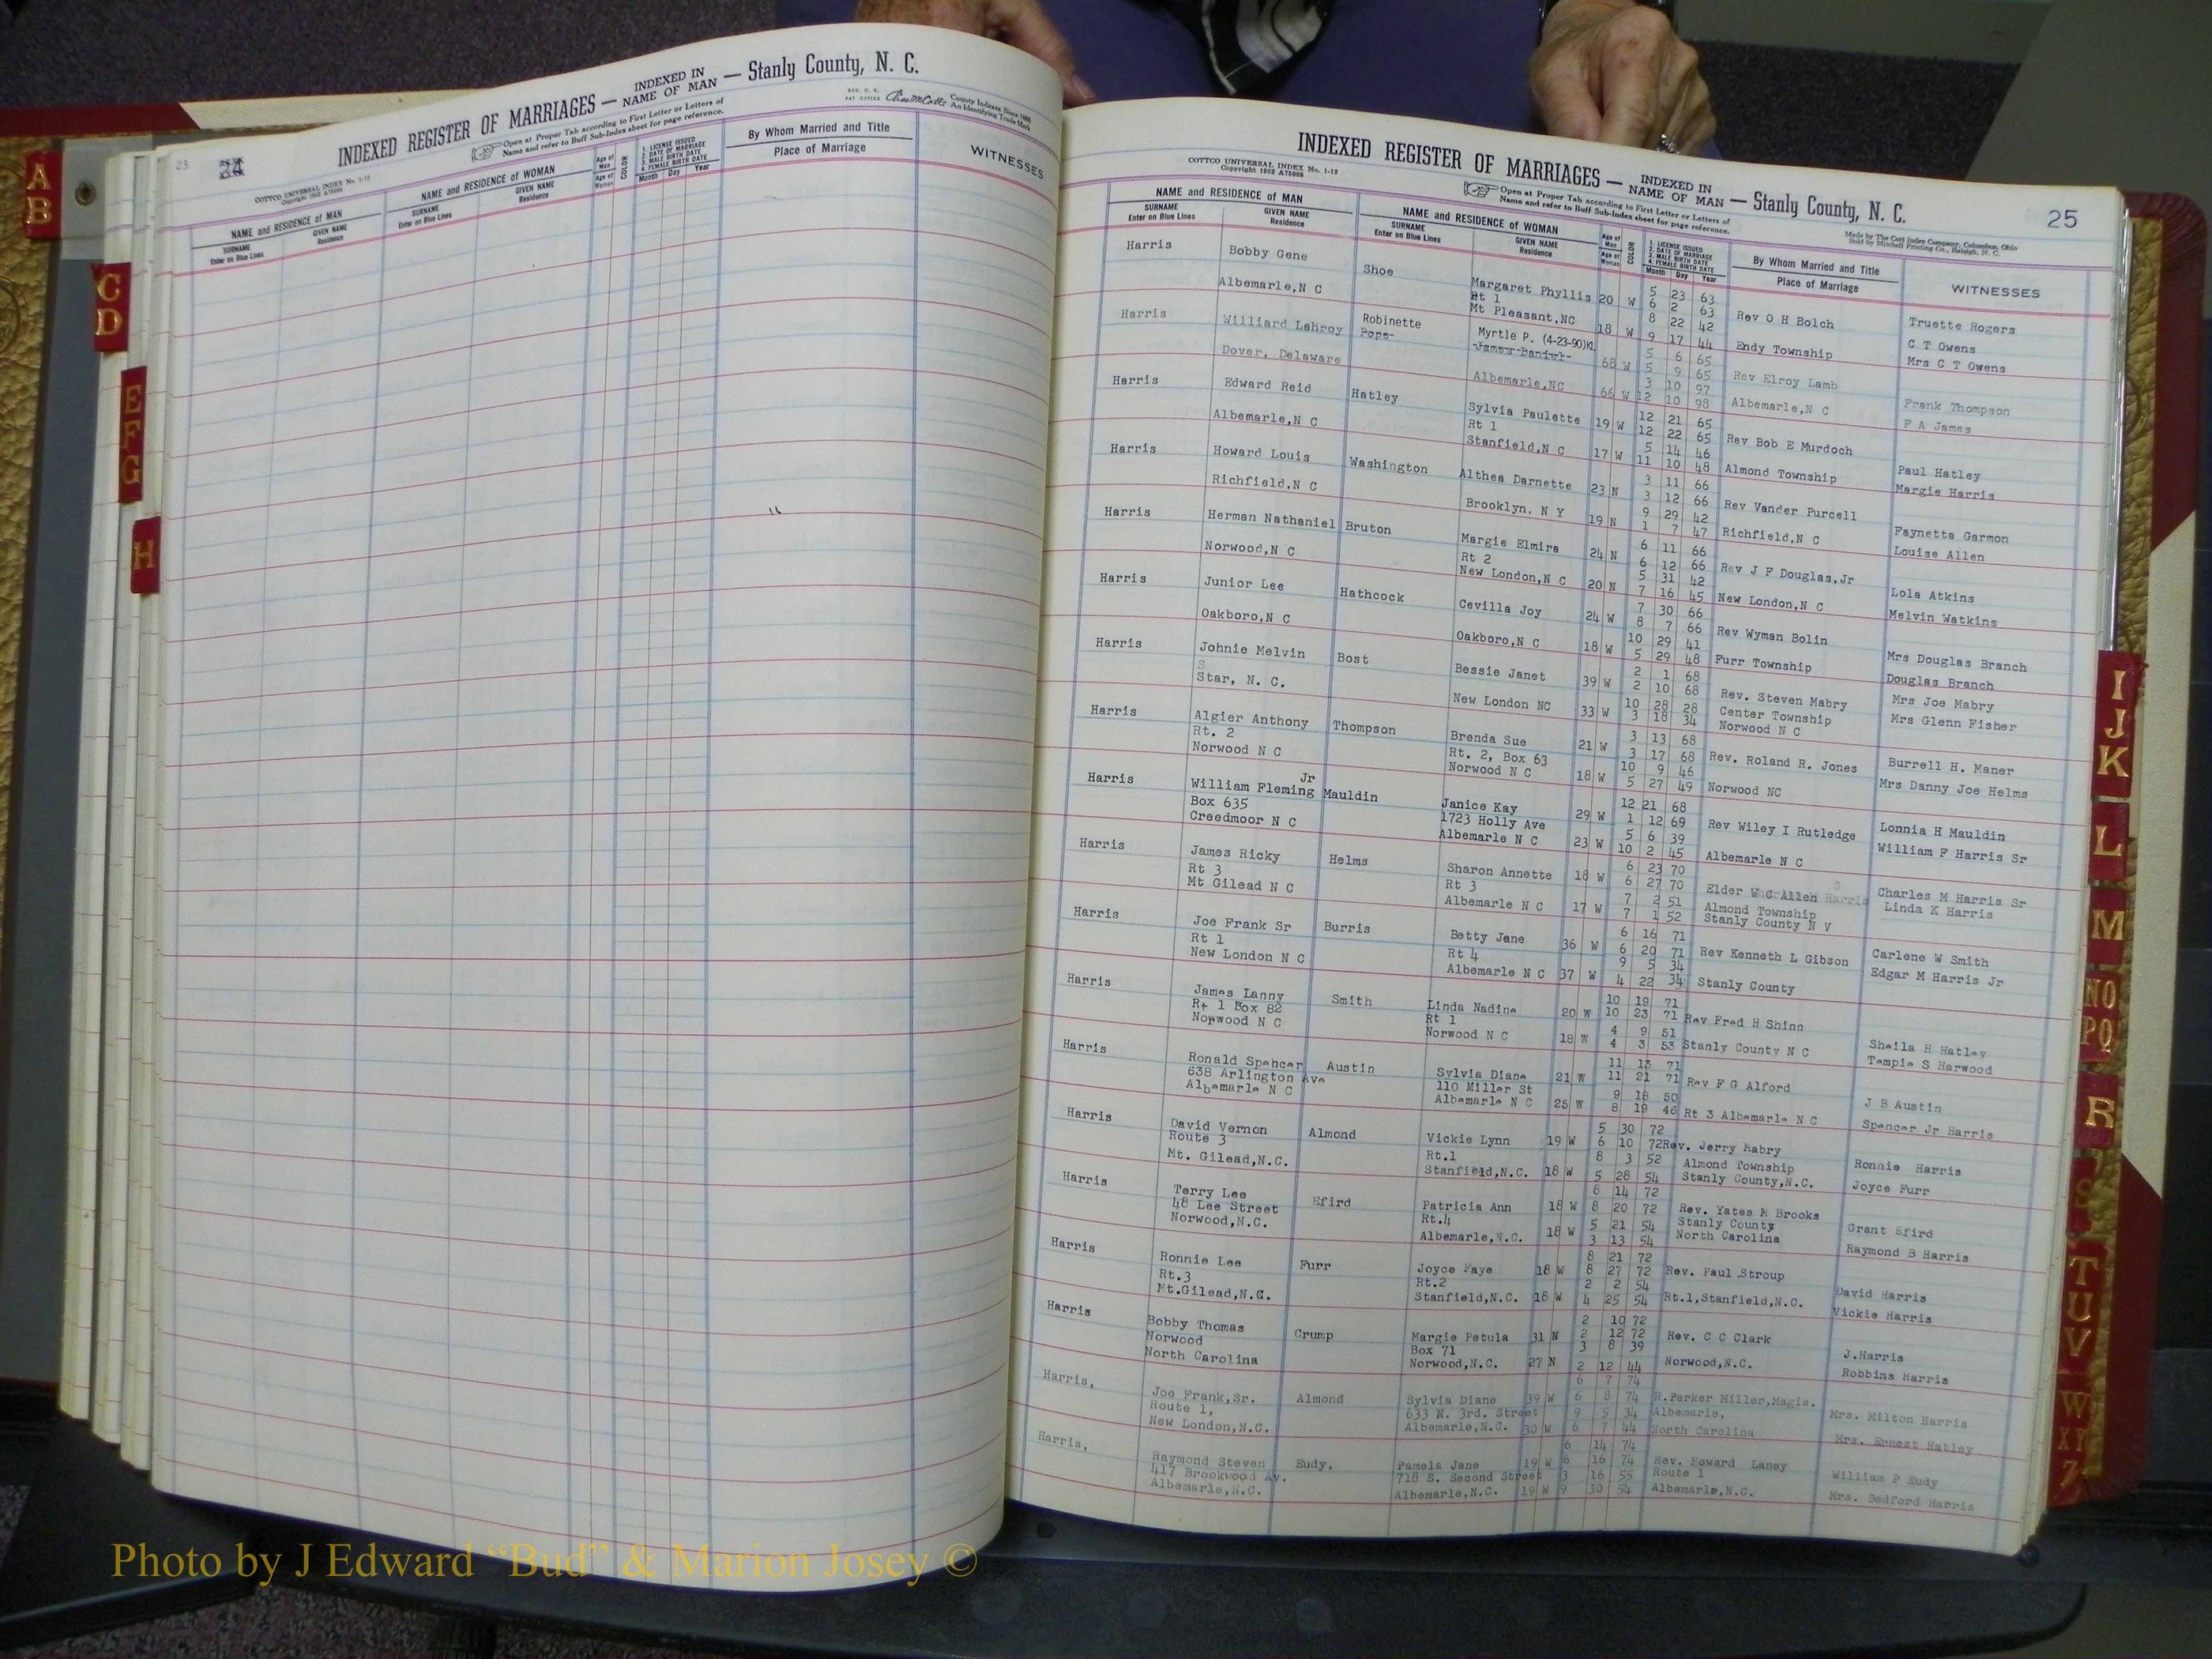 23
24
INDEXED REGISTER OF MARRIAGES — INDEXED IN NAME OF MAN — Stanly County, N. C.
COTTCO UNIVERSAL INDEX No. 1-12
Copyright 1952
Open at Proper Tab according to First Letter or Letters of
Name and refer to Buff Sub-Index sheet for page reference.
REG. U. S.
PAT OFFICE
County Indexes Since 1888
An Identifying Trade Mark
NAME and RESIDENCE of MAN
SURNAME
Enter on Blue Lines
GIVEN NAME
Residence
NAME and RESIDENCE of WOMAN
SURNAME
Enter on Blue Lines
GIVEN NAME
Residence
Age of Man
Age of Woman
COLOR
1. LICENSE ISSUED
2. DATE OF MARRIAGE
3. MALE BIRTH DATE
4. FEMALE BIRTH DATE
Month Day Year
By Whom Married and Title
Place of Marriage
WITNESSES
A
B
C
D
E
F
G
H
INDEXED REGISTER OF MARRIAGES — INDEXED IN NAME OF MAN — Stanly County, N. C.
25
COTTCO UNIVERSAL INDEX No. 1-12
Copyright 1952 A75088
Open at Proper Tab according to First Letter or Letters of
Name and refer to Buff Sub-Index sheet for page reference.
Made by The Cott Index Company, Columbus, Ohio
Sold by Mitchell Printing Co., Raleigh, N. C.
NAME and RESIDENCE OF MAN
SURNAME
Enter on Blue Lines
GIVEN NAME
Residence
NAME and RESIDENCE of WOMAN
SURNAME
Enter on Blue Lines
GIVEN NAME
Residence
Age of Man
Age of Woman
COLOR
1. LICENSE ISSUED
2. DATE OF MARRIAGE
3. MALE BIRTH DATE
4. FEMALE BIRTH DATE
Month Day Year
By Whom Married and Title
Place of Marriage
WITNESSES
Harris Bobby Gene Shoe Margaret Phyllis 20 W 5 23 63 Rev O H Bolch Truette Rogers
Rt 1 6 2 63
Albemarle,N C Mt Pleasant,NC 18 W 8 22 42 Endy Township C T Owens
9 17 44 Mrs C T Owens
Harris Williard LeHroy Robinette Myrtle P. (4-23-90)KL 68 W 5 6 65 Rev Elroy Lamb Frank Thompson
Pope James Daniel 5 9 65
Dover, Delaware Albemarle,NC 66 W 3 10 97 Albemarle,N C F A James
12 10 98
Harris Edward Reid Hatley Sylvia Paulette 19 W 12 21 65 Rev Bob E Murdoch Paul Hatley
Rt 1 12 22 65
Albemarle,N C Stanfield,N C 17 W 5 14 46 Almond Township Margie Harris
11 10 48
Harris Howard Louis Washington Althea Darnette 23 N 3 11 66 Rev Vander Purcell Faynetta Garmon
3 12 66
Richfield,N C Brooklyn. N Y 19 N 9 29 42 Richfield,N C Louise Allen
1 7 47
Harris Herman Nathaniel Bruton Margie Elmira 24 N 6 11 66 Rev J F Douglas,Jr Lola Atkins
Rt 2 6 12 66
Norwood,N C New London,N C 20 N 5 31 42 New London,N C Melvin Watkins
7 16 45
Harris Junior Lee Hathcock Cevilla Joy 24 W 7 30 66 Rev Wyman Bolin Mrs Douglas Branch
8 7 66
Oakboro,N C Oakboro,N C 18 W 10 29 41 Furr Township Douglas Branch
5 29 48
Harris Johnie Melvin Bost Bessie Janet 39 W 2 1 68 Rev. Steven Mabry Mrs Joe Mabry
S 2 10 68 Center Township
Star, N. C. New London NC 33 W 10 28 28 Norwood N C Mrs Glenn Fisher
3 18 34
Harris Algier Anthony Thompson Brenda Sue 21 W 3 13 68 Rev. Roland R. Jones Burrell H. Maner
Rt. 2 Rt. 2, Box 63 3 17 68
Norwood N C Norwood N C 18 W 10 9 46 Norwood NC Mrs Danny Joe Helms
5 27 49
Harris William Fleming Jr Mauldin Janice Kay 29 W 12 21 68 Rev Wiley I Rutledge Lonnia H Mauldin
Box 635 1723 Holly Ave 1 12 69
Creedmoor N C Albemarle N C 23 W 5 6 39 Albemarle N C William F Harris Sr
10 2 45
Harris James Ricky Helms Sharon Annette 18 W 6 23 70 Elder W C Allen Charles M Harris Sr
Rt 3 Rt 3 6 27 70 Almond Township
Mt Gilead N C Albemarle N C 17 W 7 2 51 Stanly County N V Linda K Harris
7 1 52
Harris Joe Frank Sr Burris Betty Jane 36 W 6 16 71 Rev Kenneth L Gibson Carlene W Smith
Rt 1 Rt 4 6 20 71
New London N C Albemarle N C 37 W 9 5 34 Stanly County Edgar M Harris Jr
4 22 34
Harris James Lanny Smith Linda Nadine 20 W 10 19 71 Rev Fred H Shinn Sheila H Hatley
Rt 1 Box 82 Rt 1 10 23 71
Norwood N C Norwood N C 18 W 4 9 51 Stanly County N C Tempie S Harwood
4 3 53
Harris Ronald Spencer Austin Sylvia Diane 21 W 11 13 71 Rev F G Alford J B Austin
638 Arlington Ave 110 Miller St 11 21 71
Albemarle N C Albemarle N C 25 W 9 18 50 Rt 3 Albemarle N C Spencer Jr Harris
8 19 46
Harris David Vernon Almond Vickie Lynn 19 W 5 30 72 Rev. Jerry Mabry Ronnie Harris
Route 3 Rt.1 6 10 72 Almond Township
Mt. Gilead,N.C. Stanfield,N.C. 18 W 8 3 52 Stanly County,N.C. Joyce Furr
5 28 54
Harris Terry Lee Efird Patricia Ann 18 W 8 14 72 Rev. Yates M Brooks Grant Efird
48 Lee Street Rt.4 8 20 72 Stanly County
Norwood,N.C. Albemarle,N.C. 18 W 5 21 54 North Carolina Raymond B Harris
3 13 54
Harris Ronnie Lee Furr Joyce Faye 18 W 8 21 72 Rev. Paul Stroup David Harris
Rt.3 Rt.2 8 27 72
Mt.Gilead,N.C. Stanfield,N.C. 18 W 2 2 54 Rt.1,Stanfield,N.C. Vickie Harris
4 25 54
Harris Bobby Thomas Crump Margie Petula 31 N 2 10 72 Rev. C C Clark J.Harris
Norwood Box 71 2 12 72
North Carolina Norwood,N.C. 27 N 3 8 39 Norwood,N.C. Robbins Harris
2 12 44
Harris, Joe Frank,Sr. Almond Sylvia Diane 39 W 6 7 74 R.Parker Miller,Magis. Mrs. Milton Harris
Route 1, 633 N. 3rd. Street 6 8 74 Albemarle,
New London,N.C. Albemarle,N.C. 30 W 9 5 34 North Carolina Mrs. Ernest Hatley
6 7 44
Harris, Raymond Steven Eudy, Pamela Jane 19 W 6 14 74 Rev. Howard Laney William F Eudy
417 Brookwood Av. 718 S. Second Street 6 16 74 Route 1
Albemarle,N.C. Albemarle,N.C. 19 W 3 16 55 Albemarle,N.C. Mrs. Bedford Harris
9 30 54
I
J
K
L
M
NO
PQ
R
S
T
U
V
W
XY
Z
Photo by J Edward “Bud” & Marion Josey ©